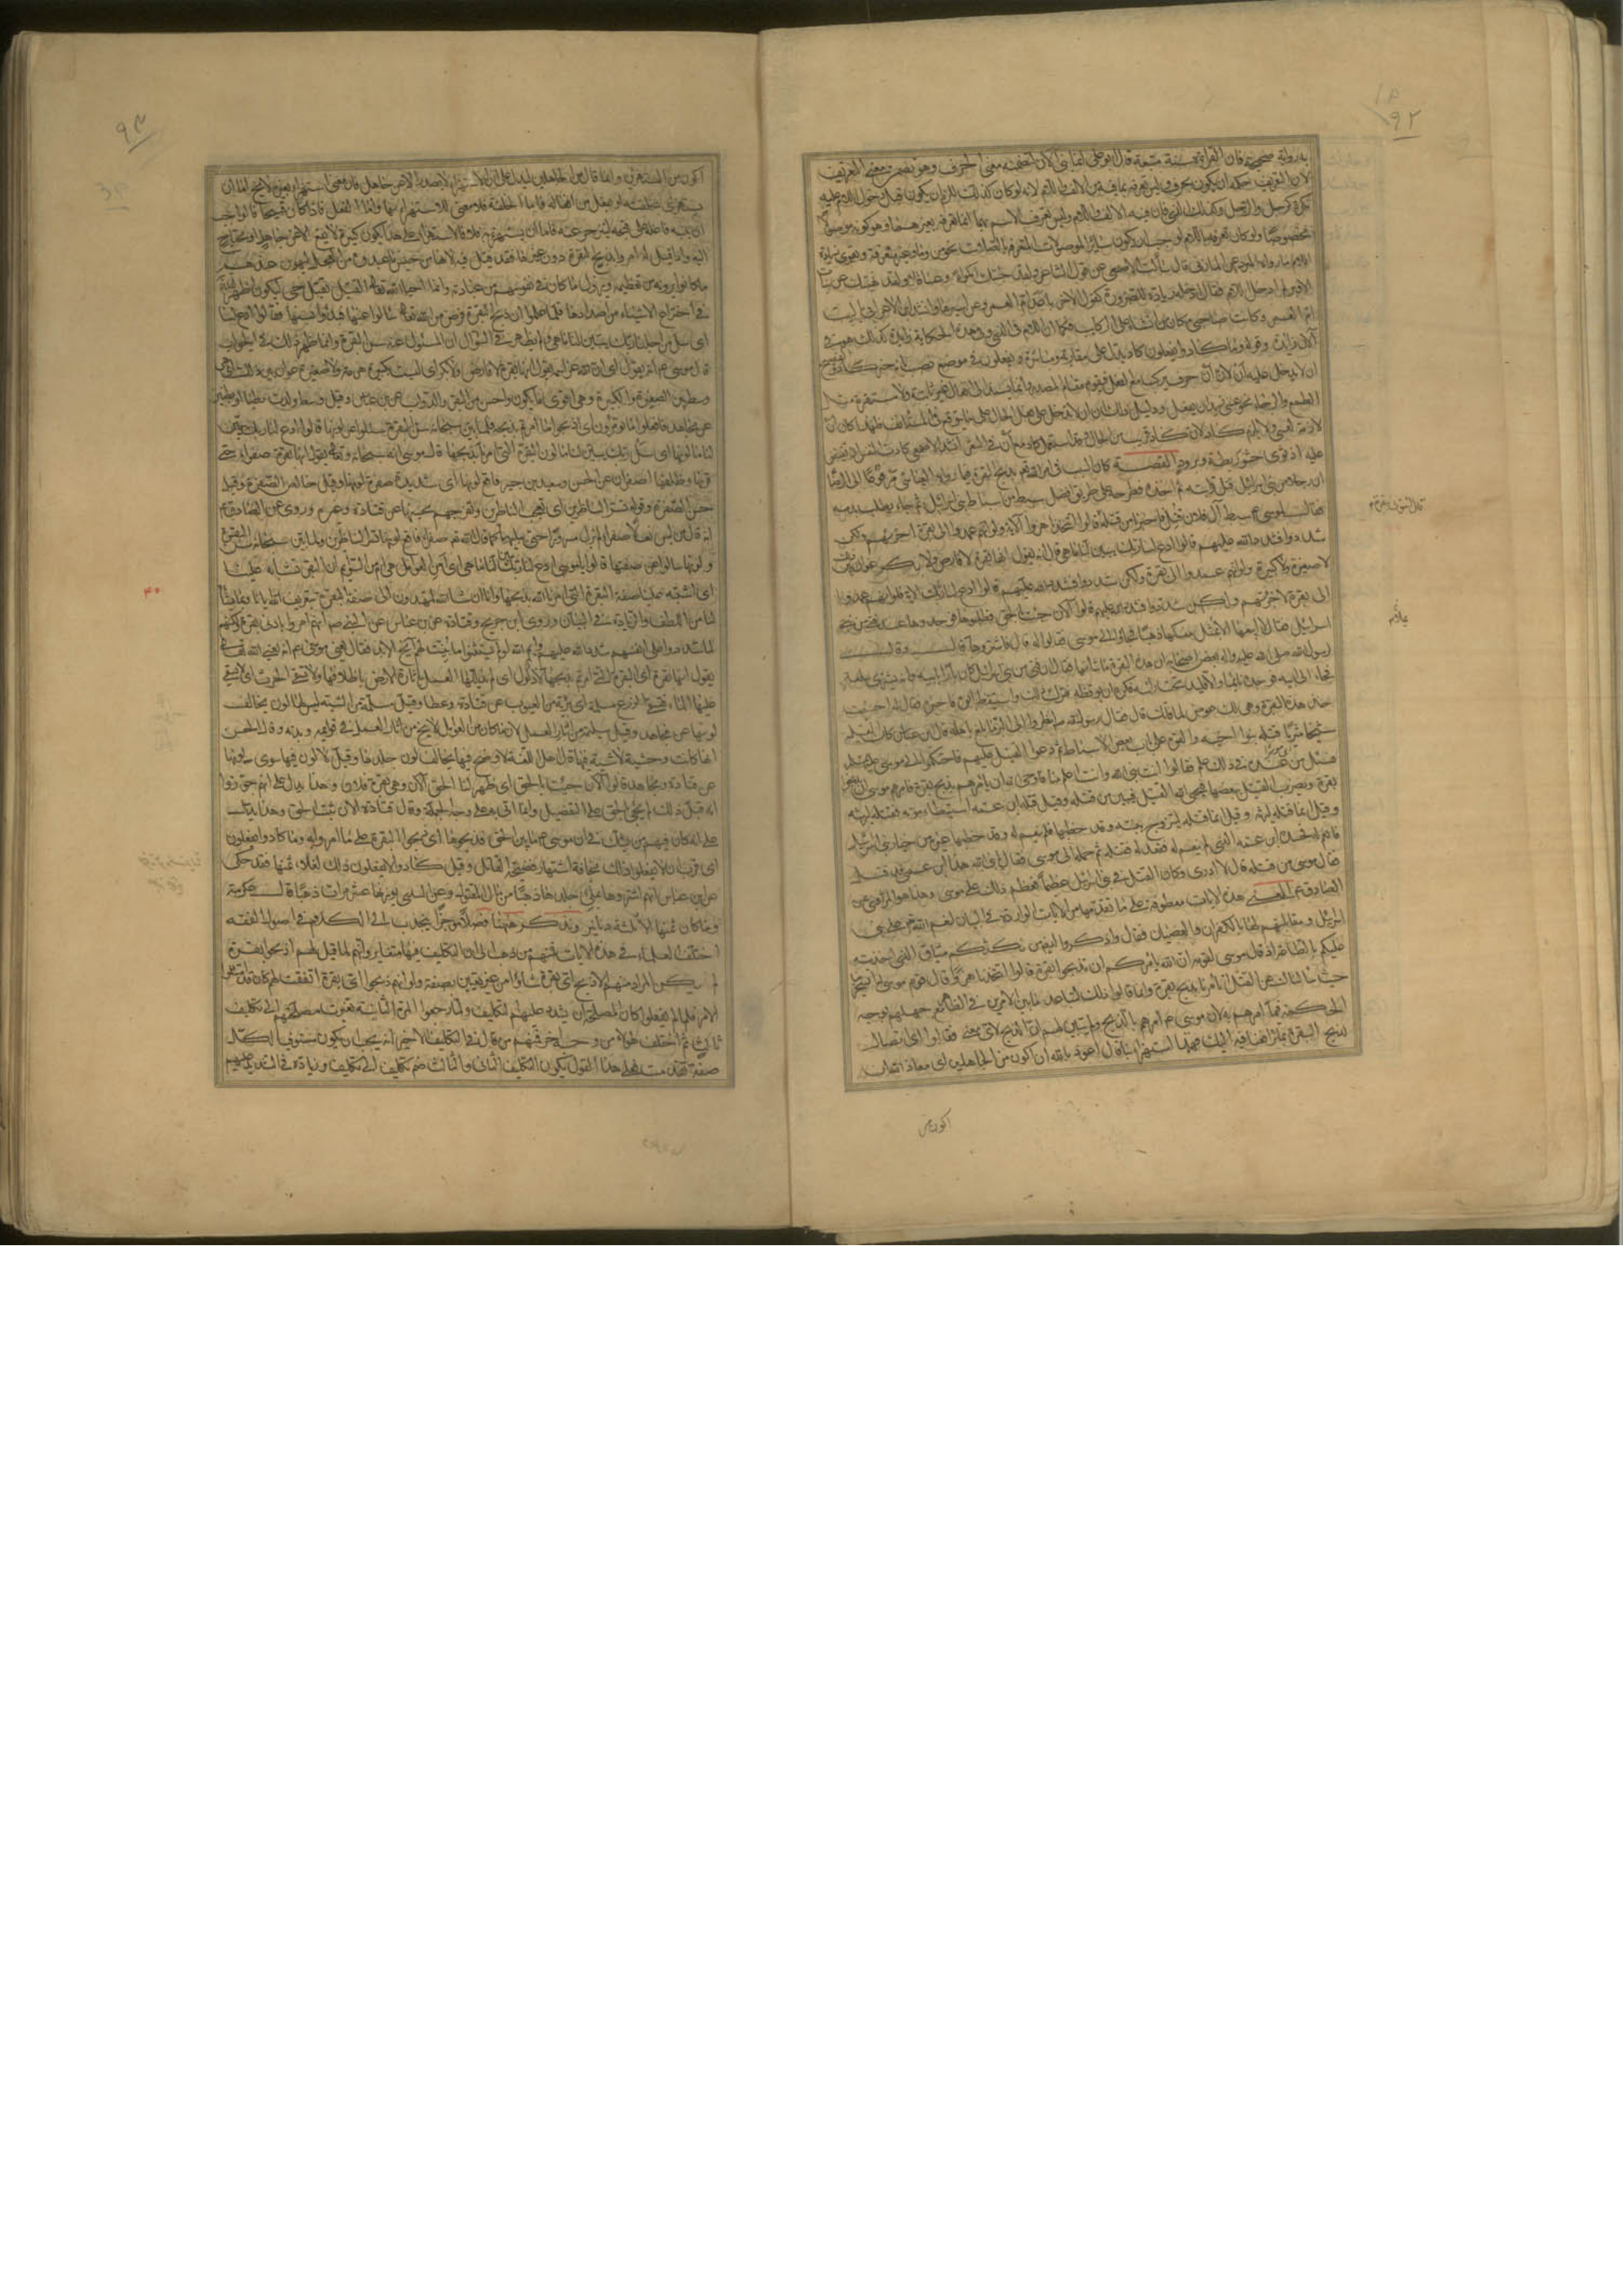 ٩٢
به رواية صحيحة فان القراءة سنة متبعة قال ابو علي انما بني الآن لتضمنه معنى الحرف وهو تضمن معنى التعريف
لان التعريف حكمه ان يكون بحرف وليس تعرفه بما فيه من الالف واللام لانه لو كان كذلك للزم ان يكون قبل دخول اللام عليه
نكرة كرجل والرجل وكذلك الذي فان فيه الالف واللام وليس تعرف الاسم بهما انما تعرفه بغيرهما وهو كونه موصولا
مخصوصا ولو كان تعرفه باللام لوجب ان يكون سائر الموصولات المتعرفة بالصلات نحو من وما غير متعرفة ويقوي زيادة
اللام ما رواه المبرد عن المازني قال سألت الاصمعي عن قول الشاعر ولقد جنيتك اكمؤا وعساقلا ولقد نهيتك عن بنات
الاوبر لم ادخل اللام فقال ادخله زيادة للضرورة كقول الاخر باعد ام العمرو من اسيرها وانشد ابن الاعرابي يا ليت
ام العمرو كانت صاحبي مكان من انشا على الركايب فكما ان اللام في الذي وفي هذه الحكاية زايدة كذلك هي في
الآن زايدة وقوله وما كادوا يفعلون كاد يدل على مقاربة مباشرة ويفعلون في موضع نصب بانه خبر كاد
لازمة لعسى ولا يلزم كاد لان كاد قريب من الحال وقد استعمل كاد مع ان في الشعر انشد الاصمعي كادت النفس ان تفيض
عليه اذ ثوى حشو ريطة وبرود القصة كان السبب في امر الله تعالى بذبح البقرة فيما رواه العياشي مرفوعا الى الرضا
ان رجلا من بني اسرائيل قتل قرابة له ثم اخذه فطرحه على طريق افضل سبط من اسباط بني اسرائيل ثم جاء يطلب بدمه
فقالت لموسى سبط آل فلان قتل فاخبرنا من قتله قالوا اتتخذنا هزوا الآية ولو انهم عمدوا الى بقرة اجزأتهم ولكن
شددوا فشدد الله عليهم قالوا ادع لنا ربك يبين لنا ما هي قال انه يقول انها بقرة لا فارض ولا بكر عوان بين ذلك
لا صغيرة ولا كبيرة ولو انهم عمدوا الى بقرة ولكن شددوا فشدد الله عليهم قالوا ادع لنا ربك
الى بقرة لاجزأتهم ولكن شددوا فشدد الله عليهم قالوا الآن جئت بالحق فطلبوها فوجدوها عند فتى من بني
اسرائيل فقال لا ابيعها الا بملء مسكها ذهبا فجاؤا الى موسى فقالوا له قال فاشتروها قال وقال
رسول الله صلى الله عليه وآله بعض اصحابه ان هذه البقرة ما شانها فقال ان فتى من بني اسرائيل كان بارا بابيه وانه اشترى سلعة
فجاء الى ابيه فوجده نايما والاقليد تحت راسه فكره ان يوقظه فترك ذلك واستيقظ ابوه فاخبره فقال له احسنت
خذ هذه البقرة وهي لك عوض لما فاتك قال فقال رسول الله انظروا الى البر ما بلغ باهله قال ابن عباس كان القتيل
شيخا مثريا قتله بنو اخيه والقوه على باب بعض الاسباط ثم ادعوا القتل عليهم فاحتكموا الى موسى
فسئل من عنده في ذلك علم فقالوا انت نبي الله وانت اعلم منا فاوحى تعالى ان يامرهم بذبح بقرة فامرهم موسى ان يذبحوا
بقرة ويضرب القتيل ببعضها فيحيي الله القتيل فيبين من قتله وقيل قتله ابن عمه استبطاء لموته فقتله ليرثه
وقيل انما قتله ليتزوج بنته وقد خطبها فلم ينعم له وقد خطبها غيره من خيار بني اسرائيل
فانعم له فحسده ابن عمه الذي لم ينعم له فقعد له فقتله ثم حمله الى موسى فقال يا نبي الله هذا ابن عمي قد قتل
فقال موسى من قتله قال لا ادري وكان القتل في بني اسرائيل عظيما فعظم ذلك على موسى وهذا هو المروي عن
الصادق المعنى هذه الآيات معطوفة على ما تقدمها من الآيات الواردة في البيان لنعم الله على بني
اسرائيل ومقابلتهم لها بالكفران والعصيان فقال واذكروا ايضا من نكثكم ميثاقي الذي اخذته
عليكم بالطاعة اذ قال موسى لقومه ان الله يامركم ان تذبحوا بقرة قالوا اتتخذنا هزوا قال قوم موسى له اتسخر بنا
حيث سألناك عن القتل فتامرنا بذبح بقرة وانما قالوا ذلك لتباعد ما بين الامرين في الظاهر مع جهلهم بوجه
الحكمة فيما امرهم به لان موسى امرهم بالذبح ولم يبين لهم ان الذبح لاي معنى فقالوا اي اتصال
لذبح البقرة بما ترافعنا فيه اليك فهذا استهزاء بنا قال اعوذ بالله ان اكون من الجاهلين اي معاذ الله ان
اكون من
٩٣
اكون من المستهزئين وانما قال من الجاهلين ليدل على ان الاستهزاء لا يصدر الا عن جاهل فان من استهزأ بغيره لا يخلو اما ان
يستهزئ بخلقته او بفعل من افعاله فاما الخلقة فلا معنى للاستهزاء بها واما الفعل فاذا كان قبيحا فالواجب
ان ينبه فاعله على قبحه لينزجر عنه فاما ان يستهزئ به فلا فالاستهزاء على هذا يكون كبيرة لا يقع الا عن جاهل او محتاج
اليه وانما قيل لم امروا بذبح البقرة دون غيرها فقد قيل فيه لانها من جنس ما عبدوه من العجل ليهون عندهم
ما كانوا يرونه من تعظيمه ويزول ما كان في نفوسهم من عبادته وانما احيا الله تعالى القتيل بقتل حي ليكون اظهر لقدرته
في اختراع الاشياء من اضدادها فلما علموا ان ذبح البقرة فرض من الله تعالى سألوا عنها فبدأوا بسنها فقالوا ادع لنا
اي سل من اجلنا ربك يبين لنا ما هي ولم يظهر في السؤال ان المسئول عنه سن البقرة وانما ظهر ذلك في الجواب
قال موسى انه يقول اي ان الله عز اسمه يقول انها بقرة لا فارض ولا بكر اي ليست بكبيرة هرمة ولا صغيرة عوان بين ذلك اي هي
وسط بين الصغيرة والكبيرة وهي اقوى ما يكون واحسن من البقر والدواب عن ابن عباس وقيل وسط ولدت بطنا او بطنين
عن مجاهد فافعلوا ما تؤمرون اي اذبحوا ما امرتم بذبحه فلما بين سبحانه سن البقرة سئلوا عن لونها قالوا ادع لنا ربك يبين
لنا ما لونها اي سل ربك يبين لنا ما لون البقرة التي امرنا بذبحها قال موسى انه سبحانه وتعالى يقول انها بقرة صفراء حتى
قرنها وظلفها اصفران عن الحسن وسعيد بن جبير فاقع لونها اي شديدة صفرة لونها وقيل خالص الصفرة وقيل
حسن الصفرة وقوله تسر الناظرين اي تعجب الناظرين وتفرحهم بحسنها عن قتادة وغيره وروي عن الصادق
انه قال من لبس نعلا صفراء لم يزل مسرورا حتى يبليها كما قال الله تعالى صفراء فاقع لونها تسر الناظرين ولما بين سبحانه سن البقرة
ولونها سالوا عن صفتها قالوا يا موسى ادع لنا ربك يبين لنا ما هي اي من العوامل هي ام من السوائم ان البقر تشابه علينا
اي اشتبه علينا صفة البقرة التي امرنا الله بذبحها وانا ان شاء الله لمهتدون الى صفة البقرة بتعريف الله ايانا وبما يشاء
لنا من اللطف والزيادة في البيان وروى ابن جريج وقتادة عن ابن عباس عن النبي انهم امروا بادنى بقرة ولكنهم
لما شددوا على انفسهم شدد الله عليهم وايم الله لو لم يستثنوا ما بينت لهم آخر الابد فقال يعني موسى انه يعني الله تعالى
يقول انها بقرة اي البقرة التي امرتم بذبحها لا ذلول اي لم يذللها العمل باثارة الارض باظلافها ولا تسقي الحرث اي لا يستقى
عليها الماء فتسقي الزرع مسلمة اي بريئة من العيوب عن قتادة وعطا وقيل مسلمة من الشية ليس لها لون يخالف
لونها عن مجاهد وقيل سليمة من اثار العمل لان ما كان من العوامل لا يخلو من اثار العمل في قوايمه وبدنه وقال الحسن
انها كانت وحشية لا شية فيها قال اهل اللغة لا وضح فيها يخالف لون جلدها وقيل لا لون فيها سوى لونها
عن قتادة ومجاهد قالوا الآن جئت بالحق اي ظهر لنا الحق الآن وهي بقرة فلان وهذا يدل على انهم جوزوا
انه قبل ذلك لم يجئ بالحق على التفصيل وانما اتى به على وجه الجملة وقال قتادة الآن بينت الحق وهذا يدل
على انه كان فيهم من يشك في ان موسى ما بين الحق فذبحوها اي ذبحوا البقرة على ما امروا به وما كادوا يفعلون
اي قرب ان لا يفعلوا ذلك مخافة اشتهار فضيحة القاتل وقيل كادوا لا يفعلون ذلك لغلاء ثمنها فقد حكي
عن ابن عباس انهم اشتروها بملء جلدها ذهبا من مال المقتول وعن السدي بوزنها عشر مرات ذهبا قال عكرمة
وما كان ثمنها الا ثلثة دنانير ونذكر ههنا فصلا موجزا ينجذب الى الكلام في اصول الفقه
اختلف العلماء في هذه الآيات فمنهم من ذهب الى ان التكليف فيها متغاير وانهم لما قيل لهم اذبحوا بقرة
لم يكن المراد منهم الا ذبح اي بقرة شاؤا من غير تعيين بصفة ولو انهم ذبحوا اي بقرة اتفقت لهم كانوا قد امتثلوا
الامر فلما لم يفعلوا كان المصلحة ان يشدد عليهم التكليف ولما راجعوا المرة الثانية تغيرت مصلحتهم الى تكليف
ثالث ثم اختلف هؤلاء من وجه آخر فمنهم من قال في التكليف الاخير انه يجب ان يكون مستوفيا لكل
صفة تقدمت فعلى هذا القول يكون التكليف الثاني والثالث ضم تكليف الى تكليف وزيادة في التشديد عليهم